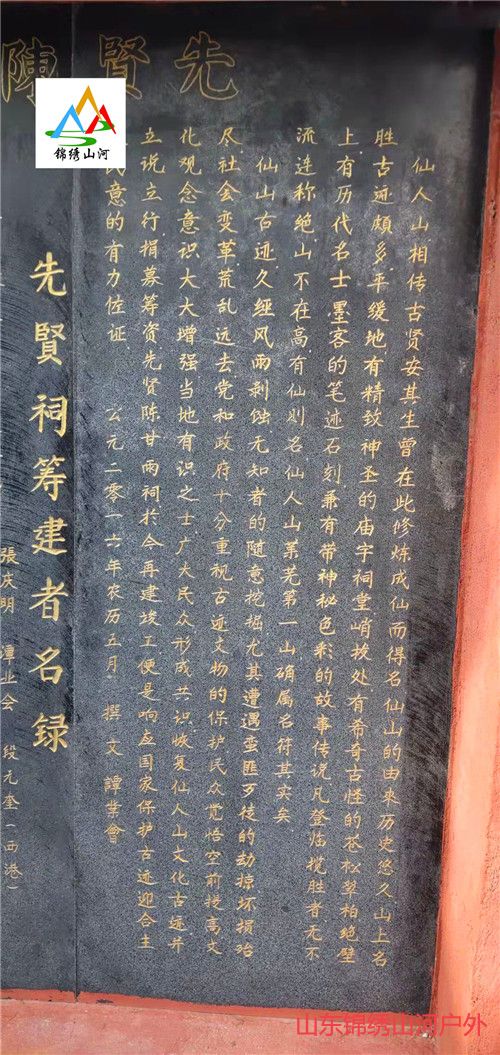 先賢陳
仙人山相传古贤安其生曾在此修炼成仙而得名仙山的由来历史悠久山上名
胜古迹頗多平缓地有精致神圣的庙宇祠堂峭拔处有希奇古怪的苍松翠柏绝壁
上有历代名士墨客的笔迹石刻兼有带神秘色彩的故事传说凡登临揽胜者无不
流连称绝山不在高有仙则名仙人山莱芜第一山确属名符其实矣
仙山古迹久经风雨剥蚀无知者的随意挖掘尤其遭遇蛮匪歹徒的劫掠坏损殆
尽社会变革荒乱远去党和政府十分重视古迹文物的保护民众觉悟空前提高文
化观念意识大大增强当地有识之士广大民众形成共识恢复仙人山文化古迹并
立说立行捐募筹资先贤陈甘两祠於今再建竣工便是响应国家保护古迹迎合主
民意的有力佐证
公元二零一六年农历五月 撰文 譚業會
先賢祠筹建者名録
張庆明 潭业会 段元奎(西港)
锦绣山河
山东锦绣山河户外